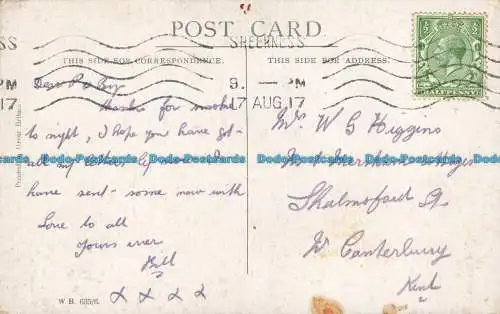 POST CARD
THIS SIDE FOR CORRESPONDENCE.
THIS SIDE FOR ADDRESS.
SHEERNESS
9. — PM
17 AUG.17
PM
17
HALFPENNY
Dear P & Boy
thanks for
to night, I hope you have got
all my letters
have sent some now with
Love to all
yours ever
Bill
X X X X
W.B. 635/6.
Printed in Great Britain
Mr W G Higgins
Shalmsford St
Nr Canterbury
Kent
Dodo-Postcards Dodo-Postcards Dodo-Postcards Dodo-Postcards